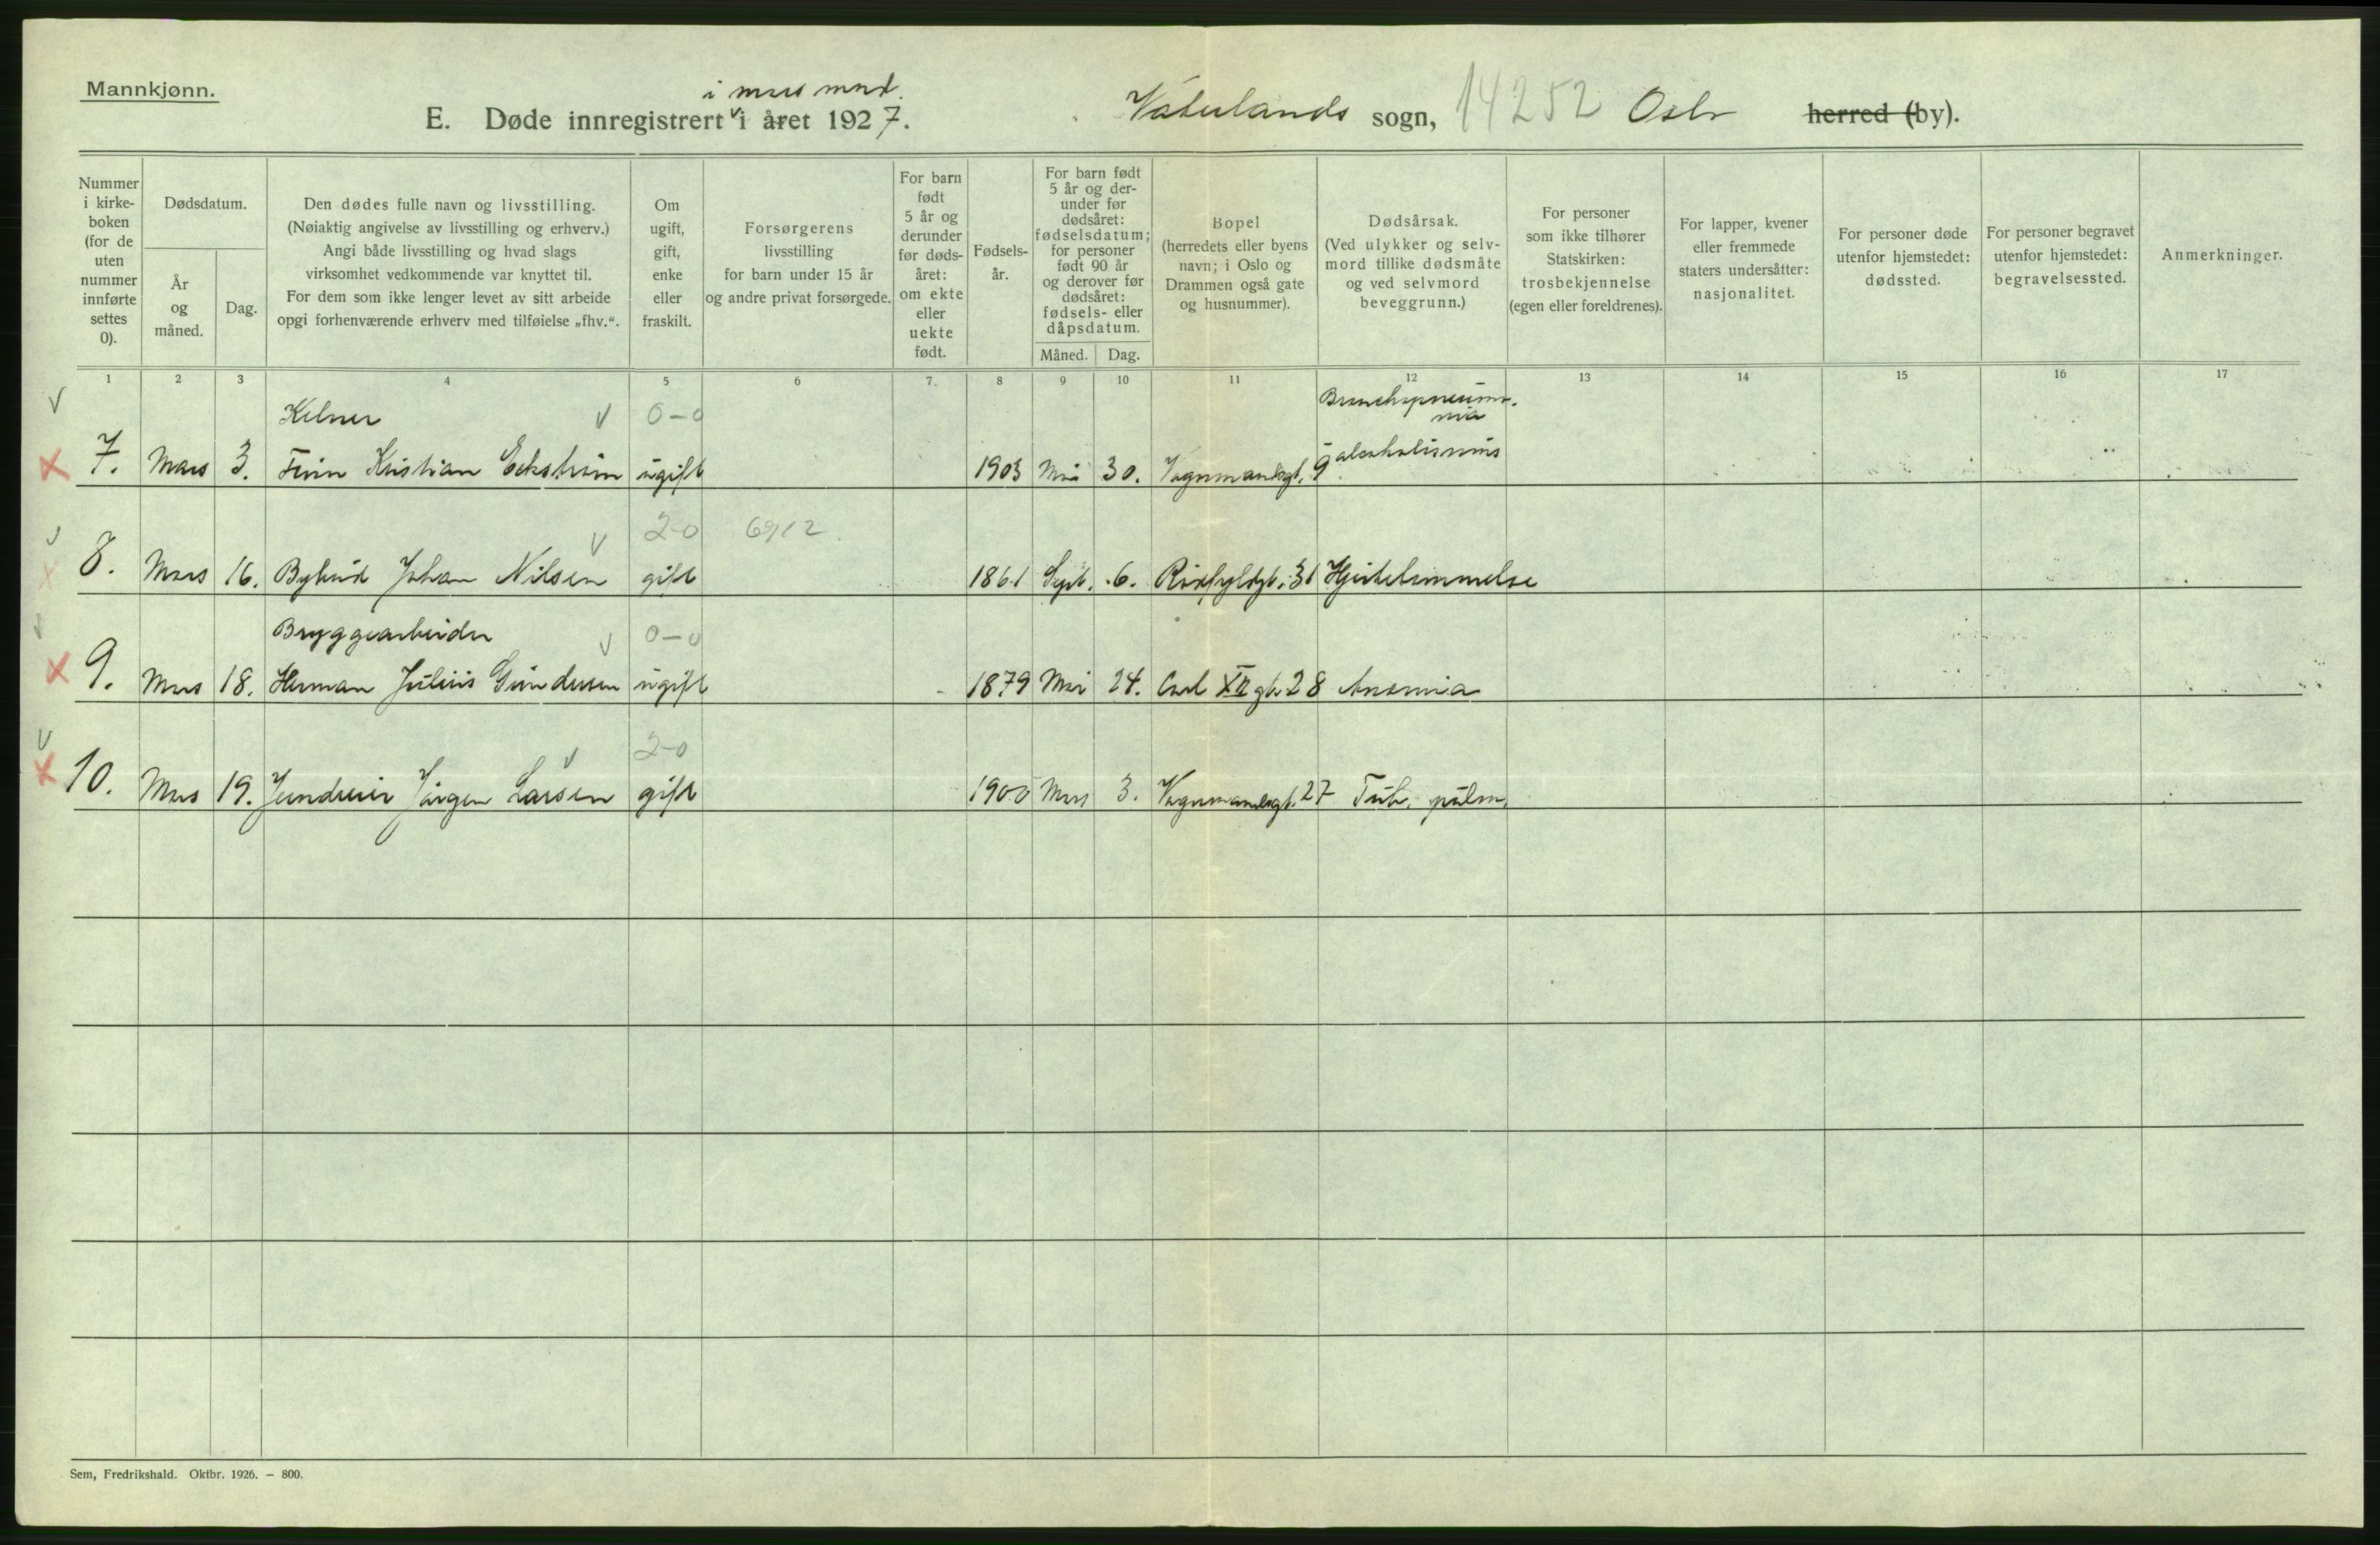 Mannkjønn.
i mars mnd.
E. Døde innregistrert v i året 1927.
Vaterlands sogn, 14252 Oslo herred (by).
Nummer i kirke-boken (for de uten nummer innførte settes 0).
Dødsdatum.
År og måned.
Dag.
Den dødes fulle navn og livsstilling.
(Nøiaktig angivelse av livsstilling og erhverv.)
Angi både livsstilling og hvad slags
virksomhet vedkommende var knyttet til.
For dem som ikke lenger levet av sitt arbeide
opgi forhenværende erhverv med tilføielse „fhv.“.
Om ugift, gift, enke eller fraskilt.
Forsørgerens
livsstilling
for barn under 15 år
og andre privat forsørgede.
For barn født 5 år og derunder før døds-året: om ekte eller uekte født.
Fødsels-år.
For barn født 5 år og der-under før dødsåret: fødselsdatum; for personer født 90 år og derover før dødsåret: fødsels- eller dåpsdatum.
Måned.
Dag.
Bopel
(herredets eller byens
navn; i Oslo og
Drammen også gate
og husnummer).
Dødsårsak.
(Ved ulykker og selv-
mord tillike dødsmåte
og ved selvmord
beveggrunn.)
For personer
som ikke tilhører
Statskirken:
trosbekjennelse
(egen eller foreldrenes).
For lapper, kvener
eller fremmede
staters undersåtter:
nasjonalitet.
For personer døde
utenfor hjemstedet:
dødssted.
For personer begravet
utenfor hjemstedet:
begravelsessted.
Anmerkninger.
1 2 3 4 5 6 7. 8 9 10 11 12 13 14 15 16 17
Kelner 0-0 Bronchopneumo-
nia
7. Mars 3. Finn Kristian Eckstrøm ugift 1903 Mai 30. Vognmandsgt. 9 alcoholismus
2-0 6912
8. Mars 16. Bybud Johan Nilsen gift 1861 Sept. 6. Rødfyldgt. 31 Hjertelammelse
Bryggearbeider 0-0
9. Mars 18. Herman Julius Gundersen ugift 1879 Mai 24. Carl XII gt. 28 Anæmia
2-0
10. Mars 19. Jørgen Larsen gift 1900 Mars 3. Vognmandsgt. 27 Tub. pulm.
Sem, Fredrikshald. Oktbr. 1926. – 800.